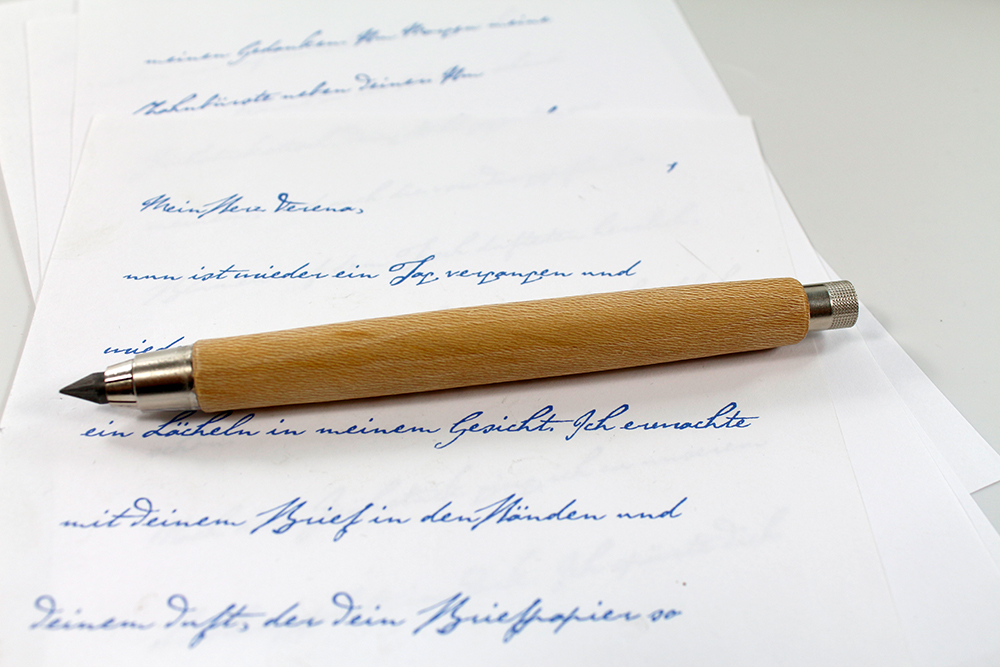 meinen Gedanken. Am Morgen meine
Zahnbürste neben deinen Am
Mein Herz Verena,
nun ist wieder ein Tag vergangen und
wied
ein Lächeln in meinem Gesicht. Ich erwachte
mit deinem Brief in den Händen und
deinem Duft, der dein Briefpapier so